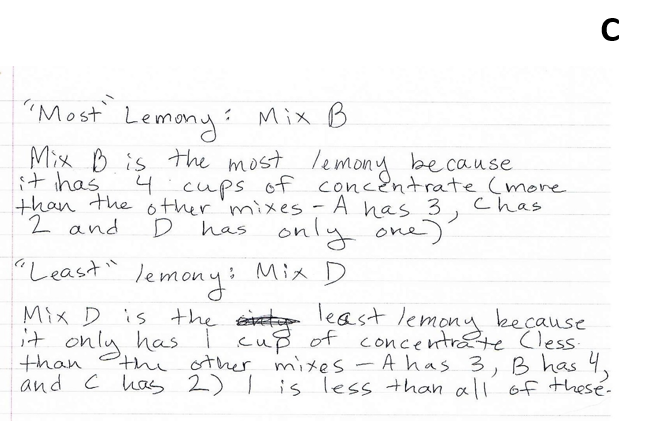 C
"Most" Lemony: Mix B
Mix B is the most lemony because
it has 4 cups of concentrate (more
than the other mixes - A has 3, C has
2 and D has only one)
"Least" lemony: Mix D
Mix D is the least lemony because
it only has 1 cup of concentrate (less
than the other mixes - A has 3, B has 4,
and C has 2) 1 is less than all of these.